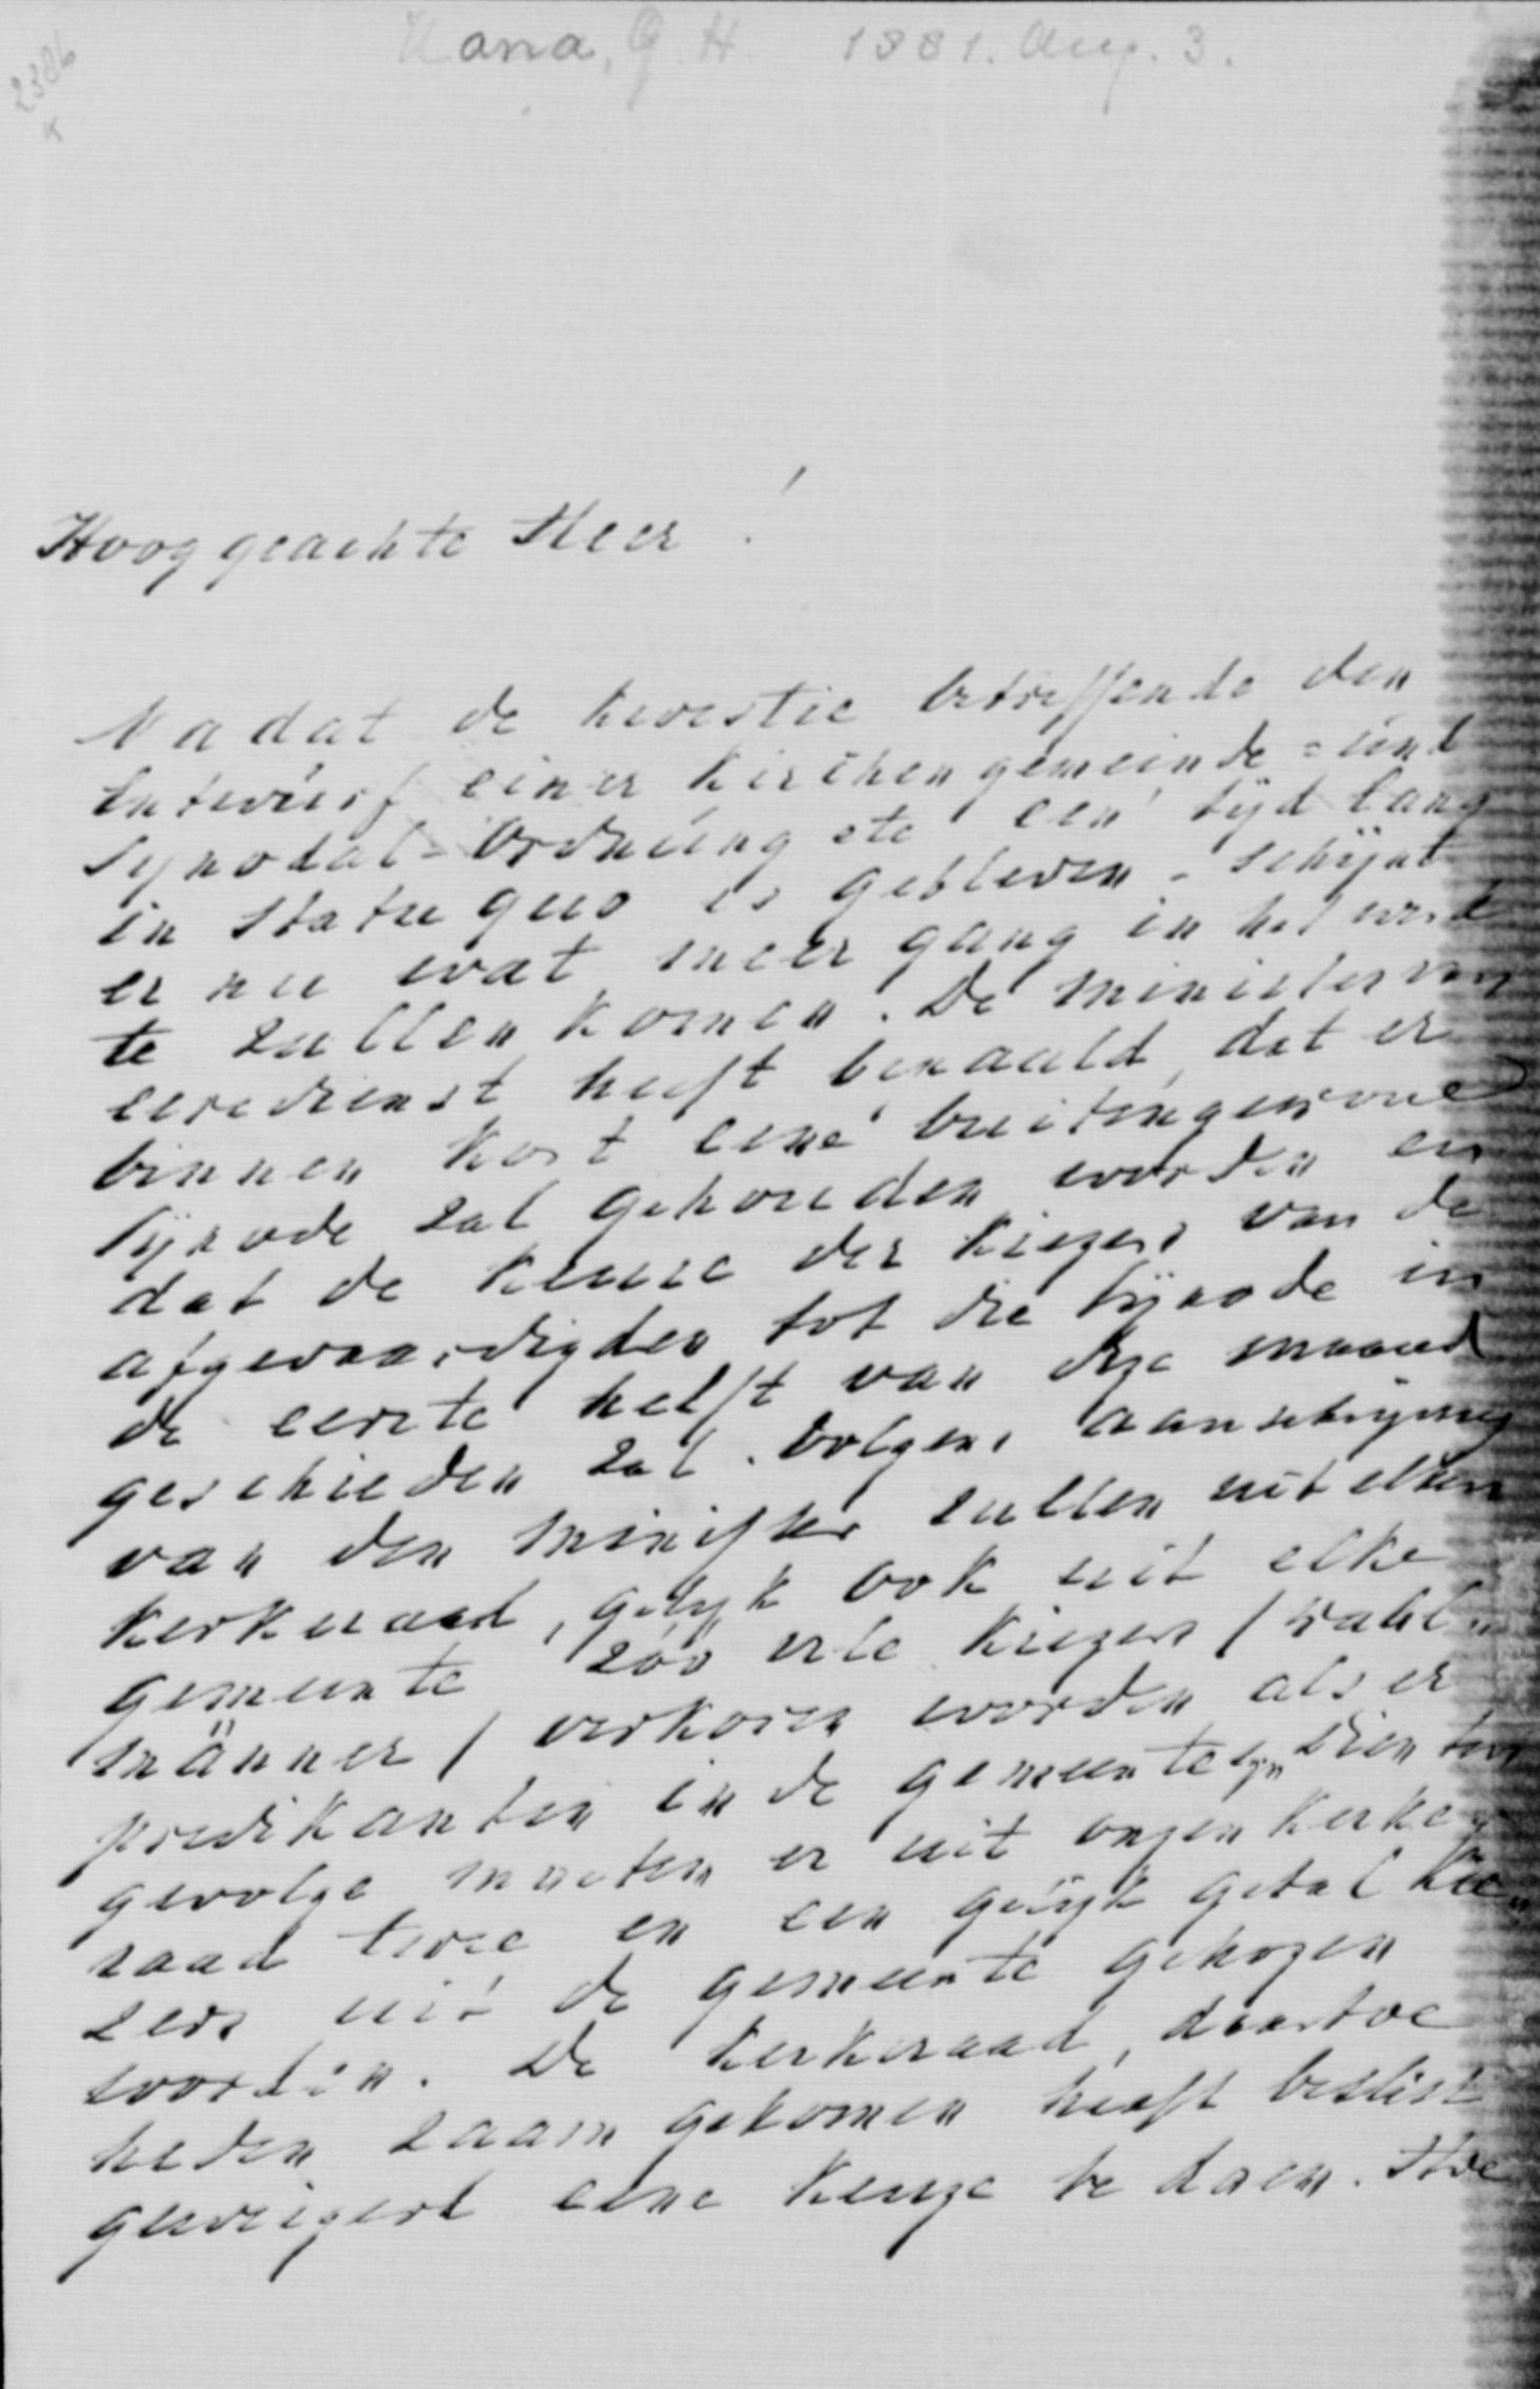 2386
K
Kana, G. H. 1881. Aug. 3.
Hooggeachte Heer!
Nadat de kwestie betreffende den
Entwurf einer Kirchengemeinde= und
Synodal-Ordnung etc een tijd lang
in statu quo is gebleven - schijnt
er nu wat meer gang in het werk
te zullen komen. De minister van
eeredienst heeft bepaald, dat er
binnen kort eene buitengewone
Synode zal gehouden worden en
dat de keuze der kiezers van de
afgevaardigden tot die Synode in
de eerste helft van deze maand
geschieden zal. Volgens aanschrijving
van den minister zullen uit elken
kerkeraad, gelijk ook uit elke
gemeente zoo vele kiezers (Wahl-
männer) verkoren worden als er
predikanten in de gemeente zijn. Dien ten
gevolge moeten er uit onzen kerke-
raad twee en een gelijk getal kie-
zers uit de gemeente gekozen
worden. De kerkeraad, daartoe
heden zaam gekomen heeft beslist
geweigerd eene keuze te doen. Hoe